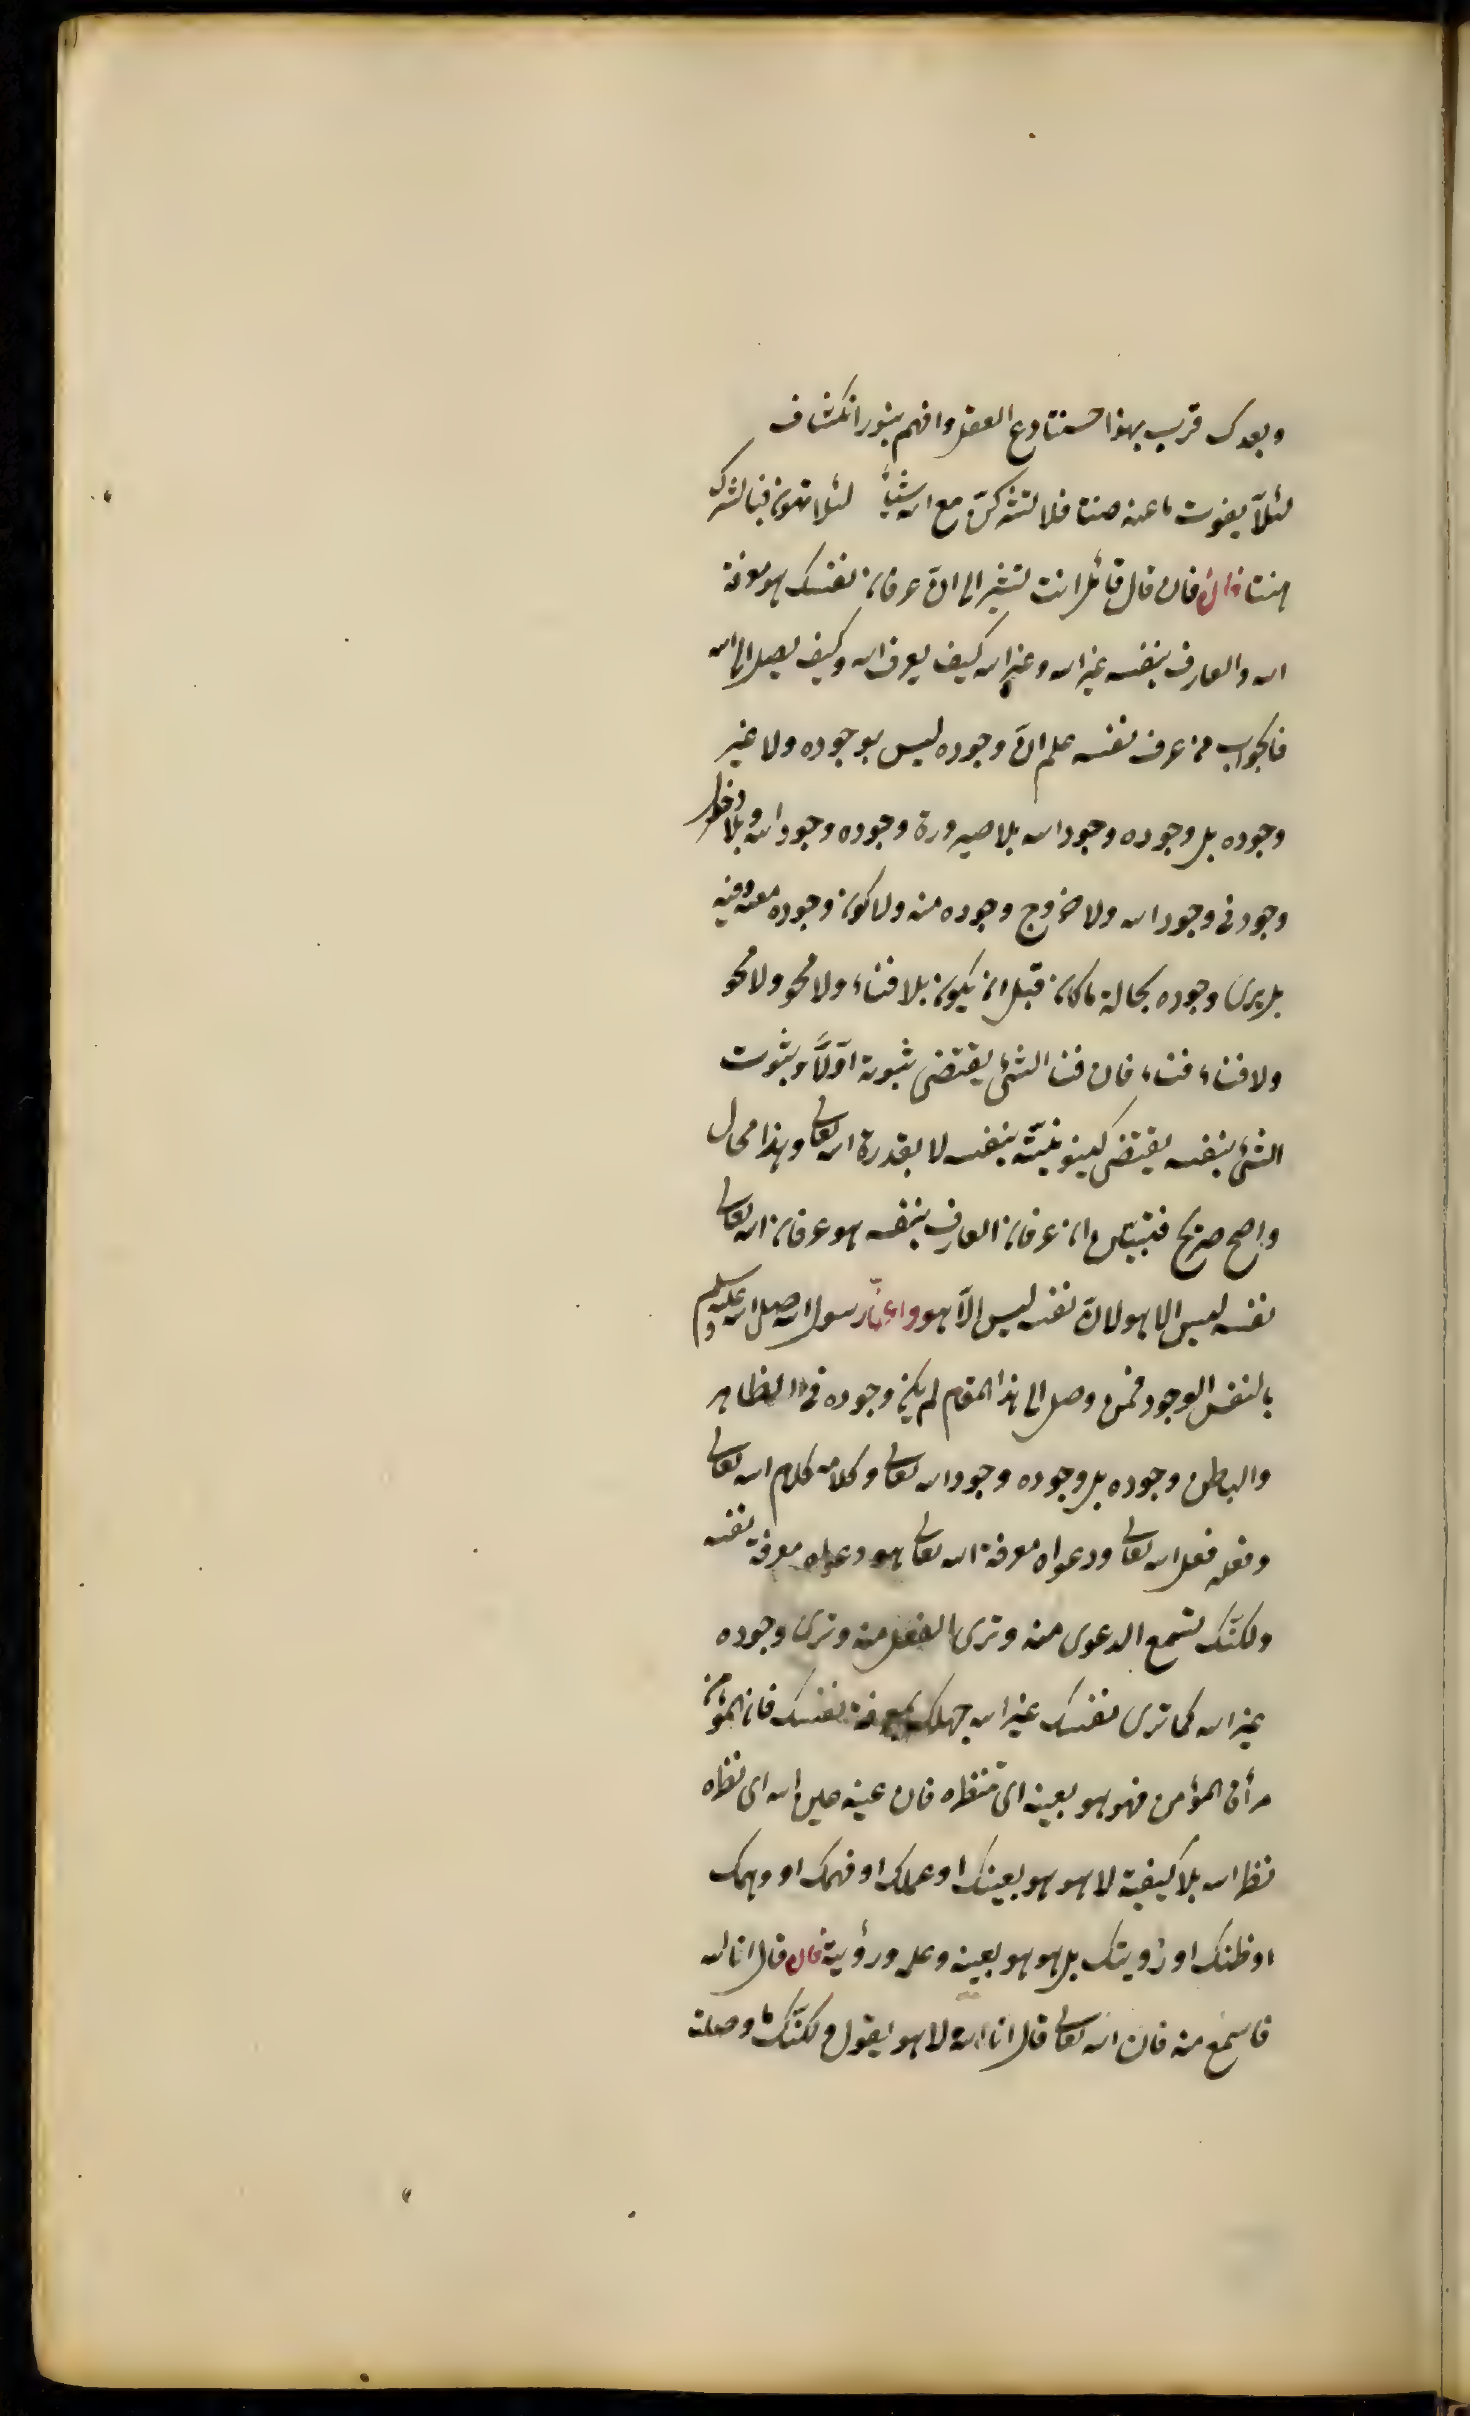 وبعدک قرب بهذا حسنتا دع العقل وافهم بنور انکشاف
لئلّا یفوت ما عنه صنتا فلا تشرکنّ مع الله شیئا لئلا تهون فبالشرک
هنتا فان قال قائل انت تشیر الی انّ عرفان نفسک هو معرفة
الله والعارف بنفسه غیر الله وغیر الله کیف یعرف الله وکیف یصل الی الله
فالجواب من عرف نفسه علم انّ وجوده لیس بوجوده ولا غیر
وجوده بل وجوده وجود الله بلا صیرورة وجوده وجود الله وبلا دخول
وجود فی وجود الله ولا خروج وجوده منه ولا کون وجوده معه وفیه
بل یری وجوده بحالة ما کان قبل ان یکون بلا فناء ولا محو ولا محو
ولا فناء فناء فان فنا الشئ یقتضی ثبوته اوّلاً وثبوت
الشئ بنفسه یقتضی کینونیّته بنفسه لا بقدرة الله تعالی وهذا محال
واضح صریح فتبیّن ان عرفان العارف بنفسه هو عرفان الله تعالی
نفسه لیس الا هو لانّ نفسه لیس الّا هو رسول الله صلی الله علیه وسلم
بالنفس الوجود فمن وصل الی هذا المقام لم یکن وجوده فی الظاهر
والباطن وجوده بل وجوده وجود الله تعالی وکلامه کلام الله تعالی
وفعله فعل الله تعالی ودعواه معرفة الله تعالی هو دعواه معرفة نفسه
ولکنّک تسمع الدعوی منه وتری الفعل منه وتری وجوده
غیر الله کما تری نفسک غیر الله جهلک بمعرفة نفسک فان المؤمن
مرآة المؤمن فهو هو بعینه ای منظره فان عینه عین الله ای نظره
نظر الله بلا کیفیة لا هو هو بعینک او علمک او فهمک او وهمک
او ظنک او رؤیتک بل هو هو بعینه وعلمه ورؤیته فان قال انا الله
فاسمع منه فان الله تعالی قال انا الله لا هو یقول ولکنّک ما وصلت